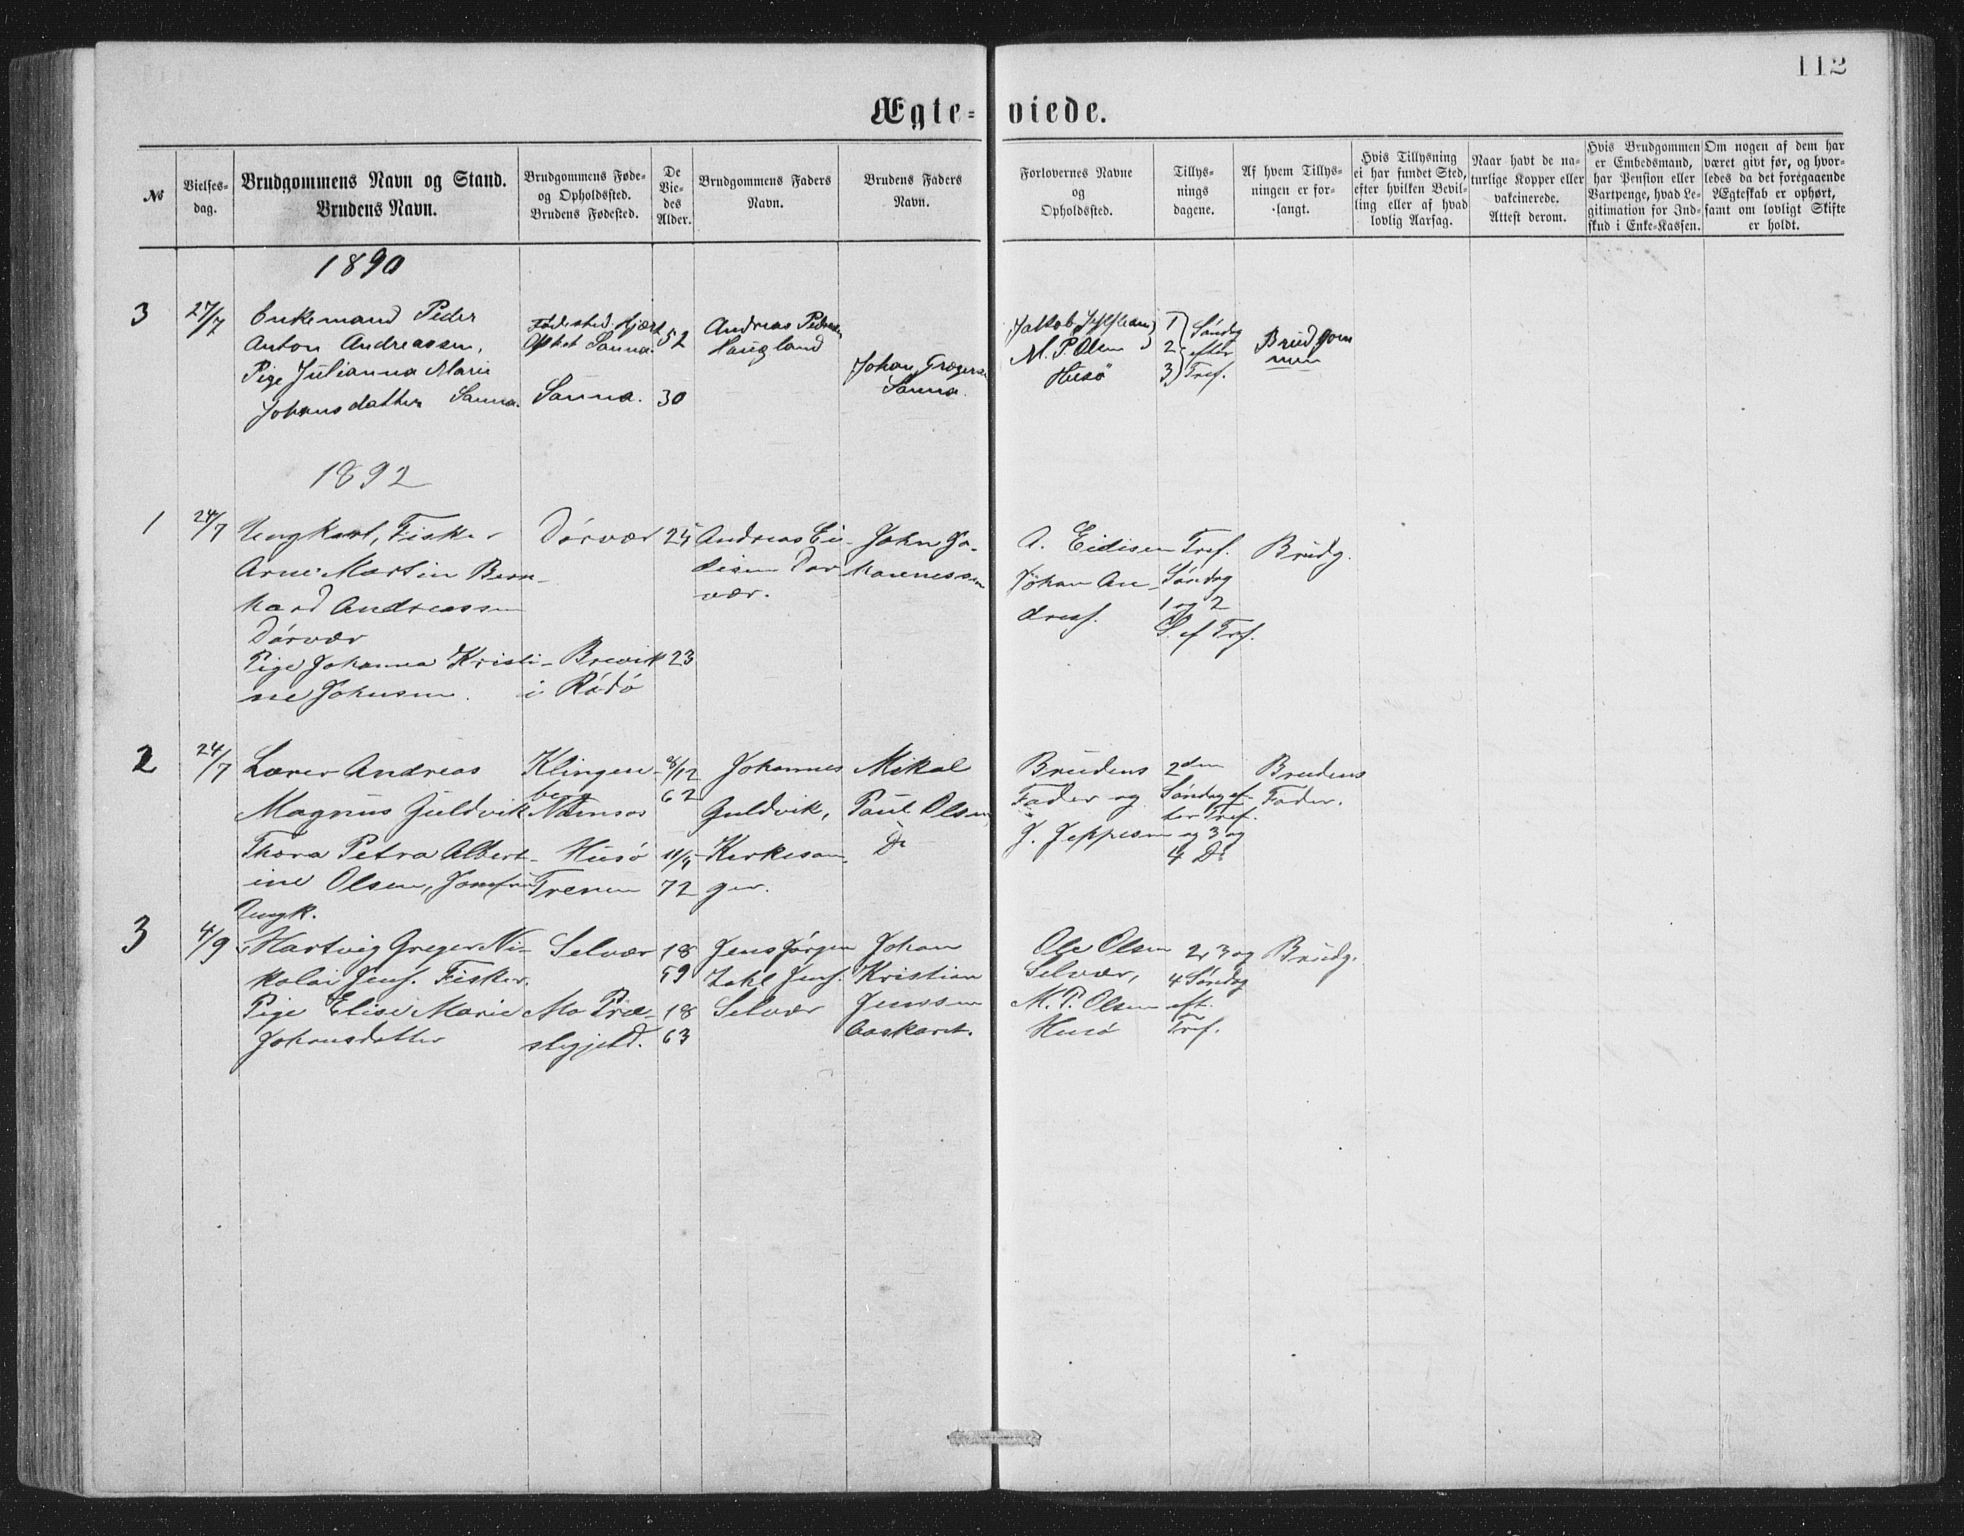 112
Ægte-viede.
No
Vielses-
dag.
Brudgommens Navn og Stand.
Brudens Navn.
Brudgommens Føde-
og Opholdssted.
Brudens Fødested.
De
Vie-
des
Alder.
Brudgommens Faders
Navn.
Brudens Faders
Navn.
Forlovernes Navne
og
Opholdssted.
Tillys-
nings
dagene.
Af hvem Tillys-
ningen er for-
langt.
Hvis Tillysning
ei har fundet Sted,
efter hvilken Bevil-
ling eller af hvad
lovlig Aarsag.
Naar havt de na-
turlige Kopper eller
vakcinerede.
Attest derom.
Hvis Brudgommen
er Embedsmand,
har Pension eller
Vartpenge, hvad Le-
gitimation for Ind-
skud i Enke-Kassen.
Om nogen af dem har
været givt før, og hvor-
ledes da det foregaaende
Ægteskab er ophørt,
samt om lovligt Skifte
er holdt.
1890
3
27/7
Enkemand Peder
Anton Andreassen,
Pige Julianna Marie
Johansdatter Sanna.
Fødested
Sanna.
Sanna.
52
30
Andreas Pedersen
Haugland
Johan Grægersen
Sanna.
Jakob
M. P. Olsen
Husø
1
2
3
Søndag
efter
Tref.
Brudgom
men
1892
1
24/7
Ungkarl, Fisker
Arne Martin Bern-
hard Andreassen
Dørvær
Pige Johanna Kristi-
ne Johnsen.
Dørvær
Brevik
i Rødø
25
23
Andreas Ei-
disen Dør
vær.
John Jo-
hannessen
A. Eidisen
Johan An-
dreas.
Tref.
Søndag
1 og 2
S. ef Trf.
Brudg.
2
24/7
Lærer Andreas
Magnus Guldvik
Thora Petra Albert-
ine Olsen, Jomfru
Klingen-
berg
Namsos
Husø
Trenen
8/12
62
11/4
72
Johannes
Guldvik,
Kirkesan-
ger.
Mikal
Paul Olsen
Do
Brudens
Fader og
J. Jeppesen
2den
Søndag ef-
ter Tref.
og 3 og
4 Do
Brudens
Fader.
3
4/9
Ungk.
Hartvig Greger Ni-
kolai Jens. Fisker.
Pige Elise Marie
Johansdatter
Selvær
Mo Præ-
stegjeld.
18
59
18
63
Jens Jørgen
Zahl Jens.
Selvær
Johan
Kristian
Jensen
Ole Olsen
Selvær,
M. P. Olsen
Husø
2, 3 og
4 Søndag
eft.
Tref.
Brudg.